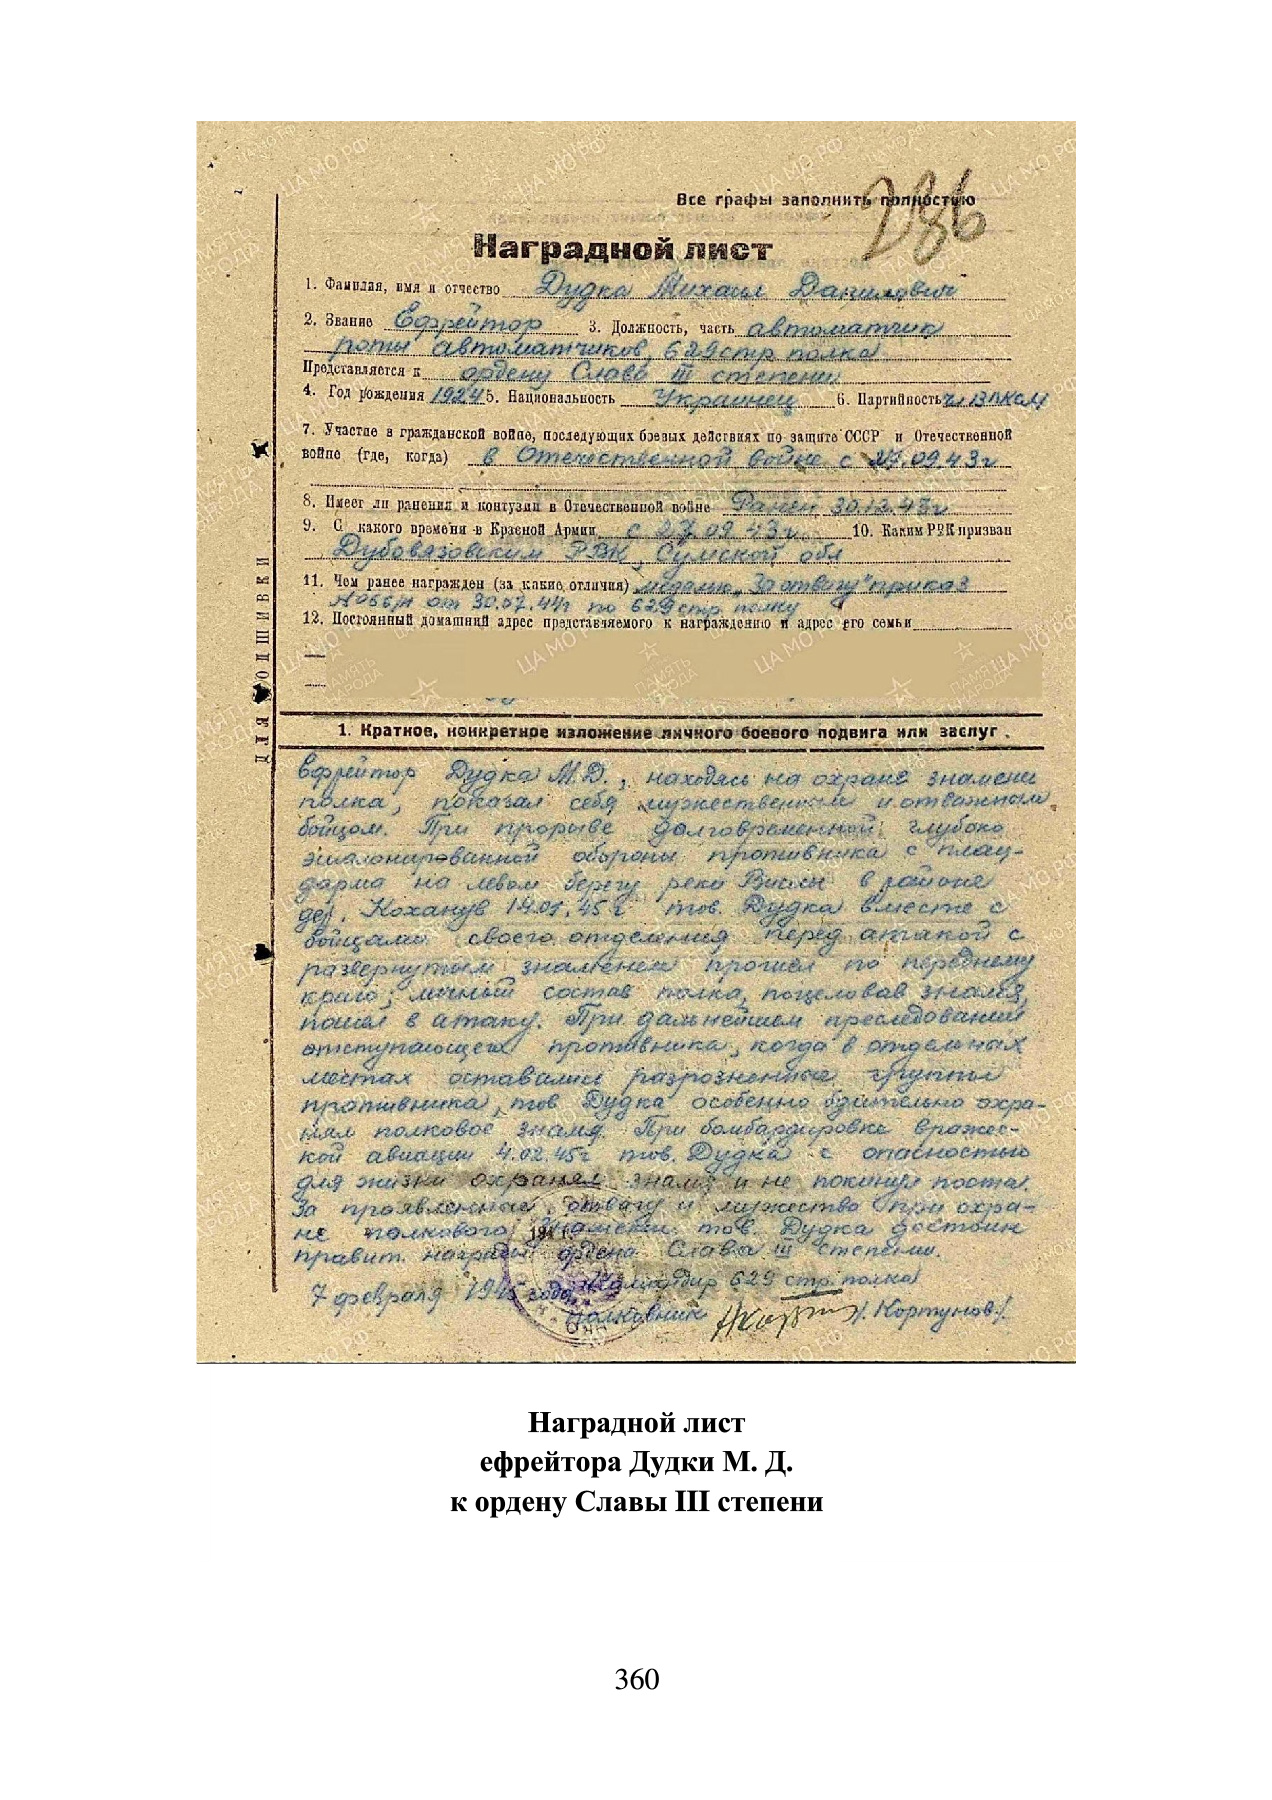 Все графы заполнить полностью
286
Наградной лист
1. Фамилия, имя и отчество Дудка Михаил Данилович
2. Звание Ефрейтор 3. Должность, часть автоматчик
роты автоматчиков 629 стр. полка
Представляется к ордену Слава III степени
4. Год рождения 1924 5. Национальность Украинец 6. Партийность чл. ВЛКСМ
7. Участие в гражданской войне, последующих боевых действиях по защите СССР и Отечественной
войне (где, когда) в Отечественной войне с 27.09.43 г
8. Имеет ли ранения и контузии в Отечественной войне Ранен 30.12.43 г
9. С какого времени в Красной Армии с 27.09.43 г. 10. Каким РВК призван
Дубовязовским РВК, Сумской обл
11. Чем ранее награжден (за какие отличия) медалью „За отвагу" приказ
№ 066/н от 30.07.44г по 629 стр. полку
12. Постоянный домашний адрес представляемого к награждению и адрес его семьи
ДЛЯ ПОДШИВКИ
1. Краткое, конкретное изложение личного боевого подвига или заслуг.
Ефрейтор Дудка М.Д., находясь на охране знамени
полка, показал себя мужественным и отважным
бойцом. При прорыве долговременной глубоко
эшалонированной обороны противника с плац-
дарма на левом берегу реки Вислы в районе
дер. Коханув 14.01.45 г тов. Дудка вместе с
бойцами своего отделения перед атакой с
развернутым знаменем прошел по переднему
краю; личный состав полка, поцеловав знамя,
пошел в атаку. При дальнейшем преследовании
отступающего противника, когда в отдельных
местах оставались разрозненные группы
противника, тов. Дудка особенно бдительно охра-
нял полковое знамя. При бомбардировке вражес-
кой авиации 4.02.45г тов. Дудка с опасностью
для жизни охранял знамя и не покинул поста.
За проявленные отвагу и мужество при охра-
не полкового знамени тов. Дудка достоин
правит. награды ордена Слава III степени.
7 февраля 1945 года Командир 629 стр. полка
полковник /Кортунов/.
ЦА МО РФ
ПАМЯТЬ НАРОДА
Наградной лист
ефрейтора Дудки М. Д.
к ордену Славы III степени
360